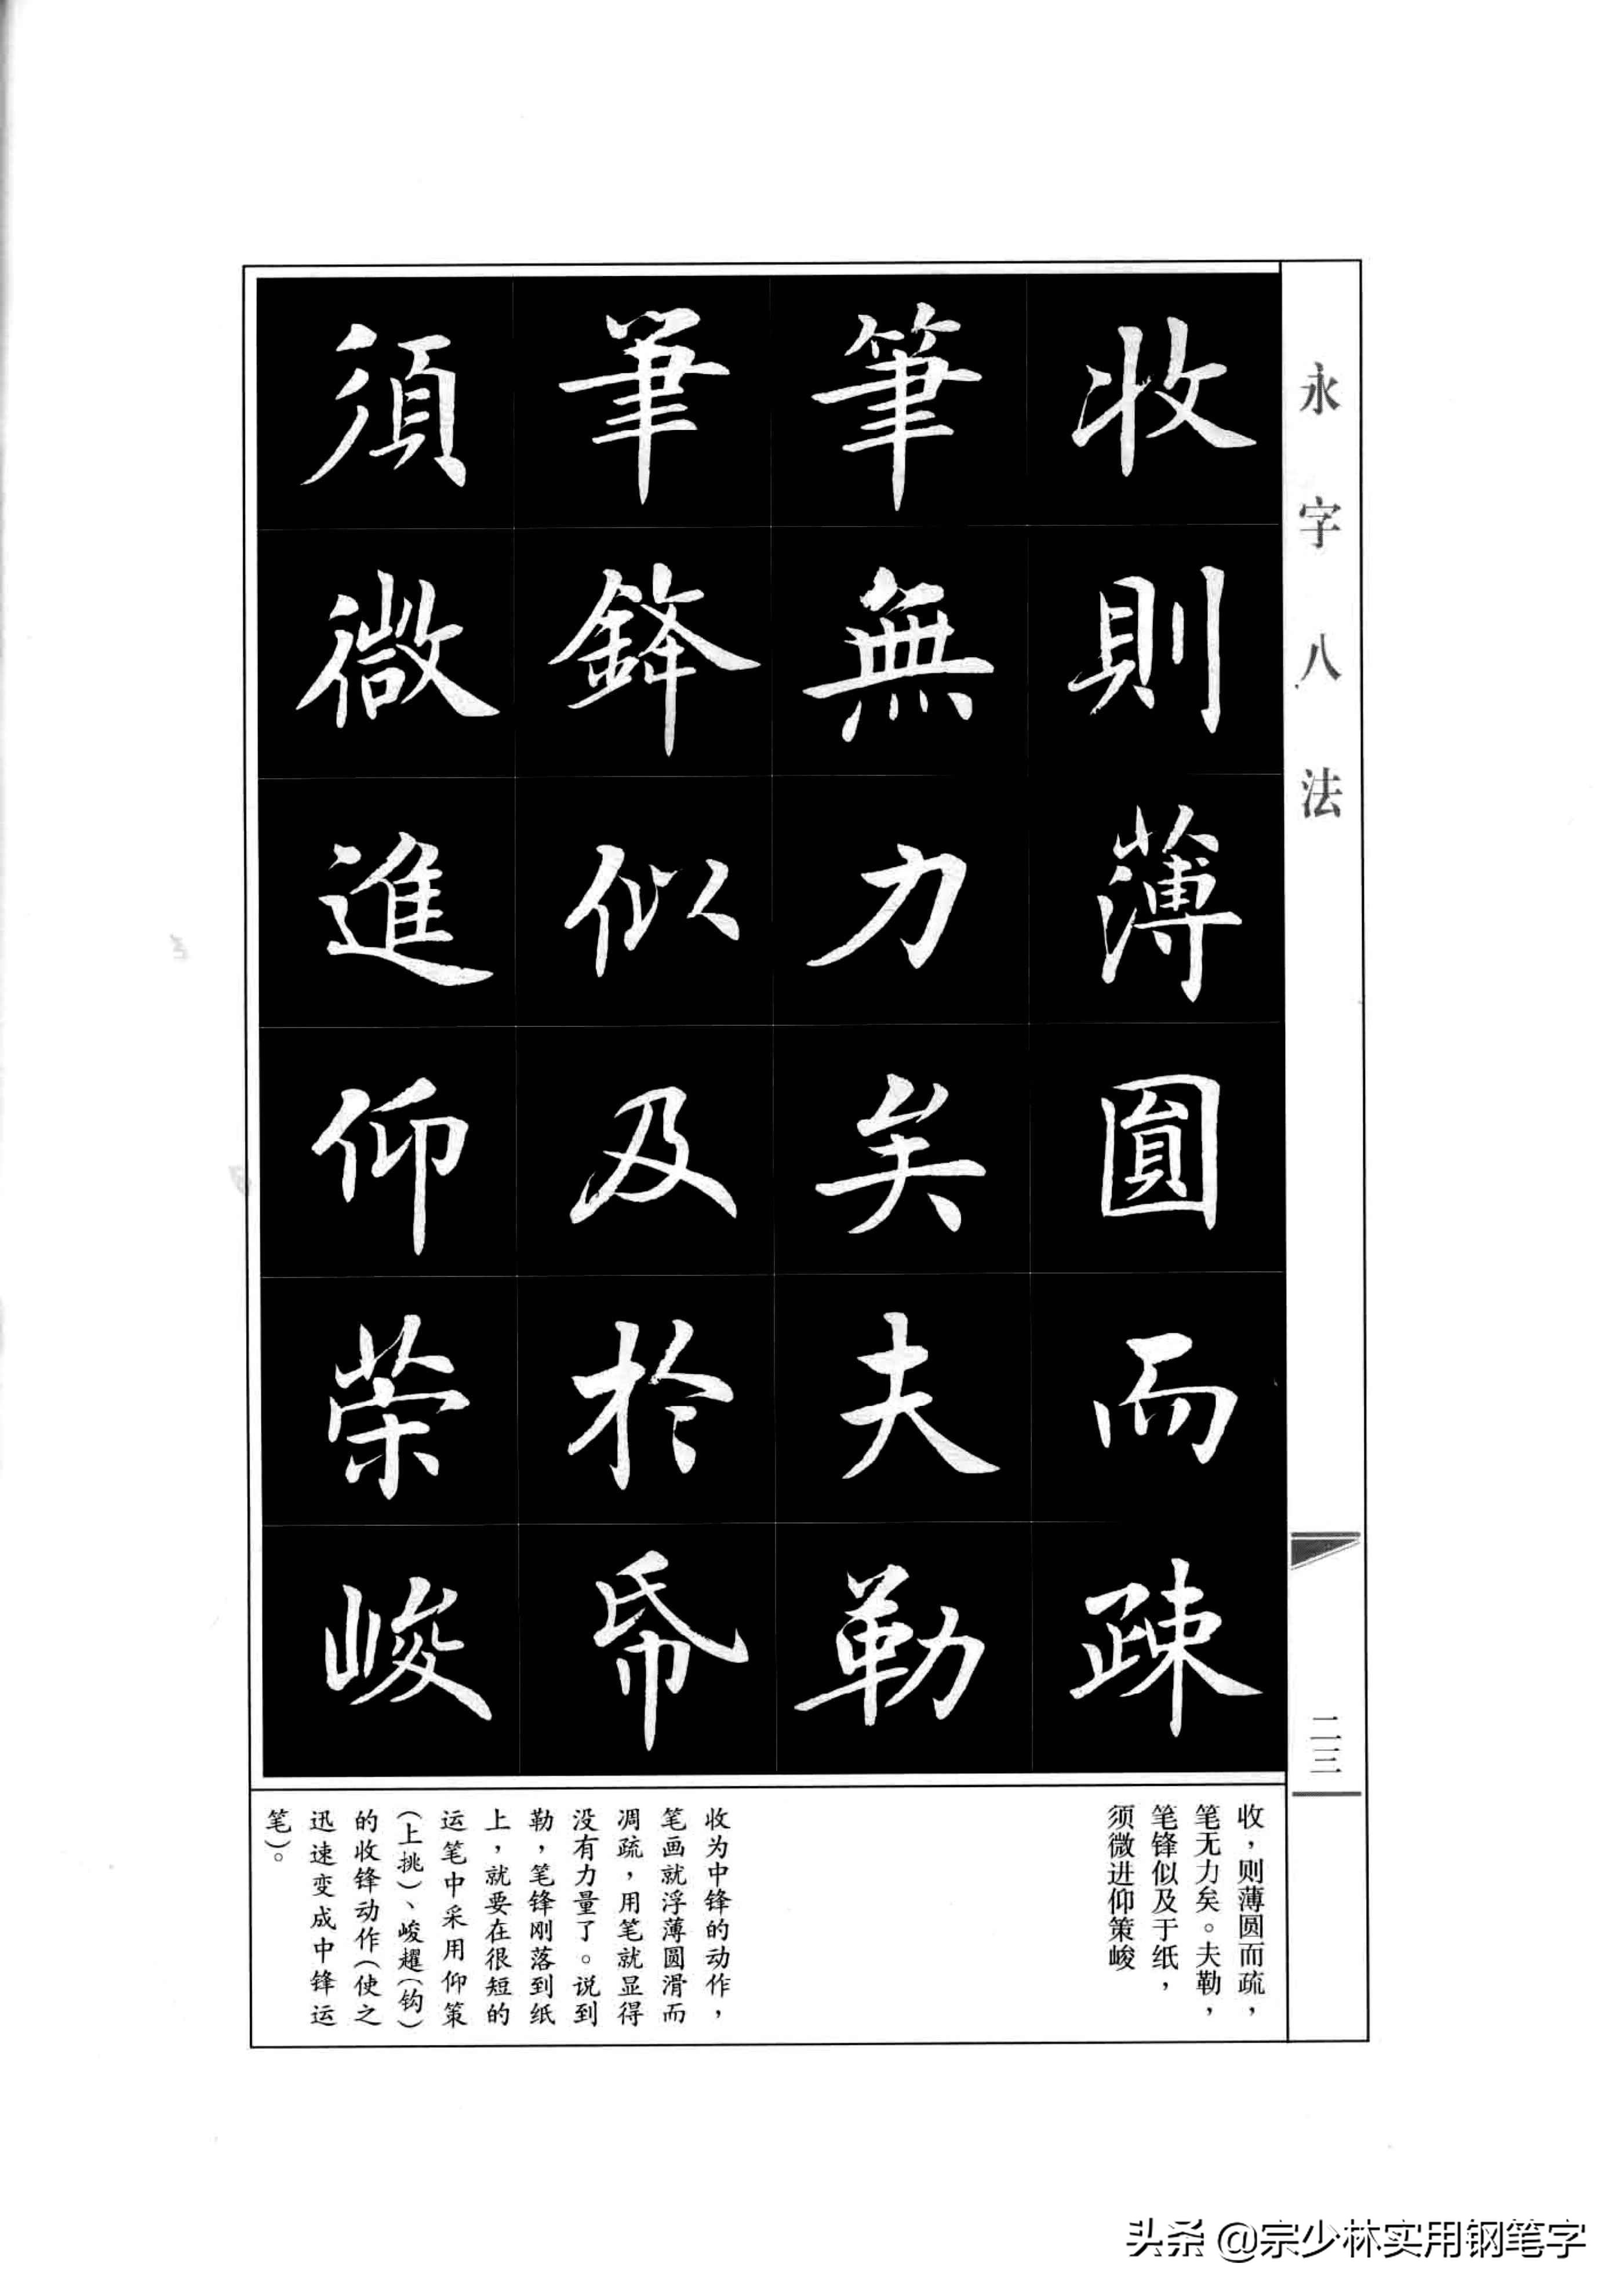 永字八法
二三
收則薄圓而疎
筆無力矣夫勒
筆鋒似及於帋
須微進仰䇿峻
收，则薄圆而疏，
笔无力矣。夫勒，
笔锋似及于纸，
须微进仰策峻
收为中锋的动作，
笔画就浮薄圆滑而
凋疏，用笔就显得
没有力量了。说到
勒，笔锋刚落到纸
上，就要在很短的
运笔中采用仰策
（上挑）、峻趯（钩）
的收锋动作（使之
迅速变成中锋运
笔）。
头条 @宗少林实用钢笔字